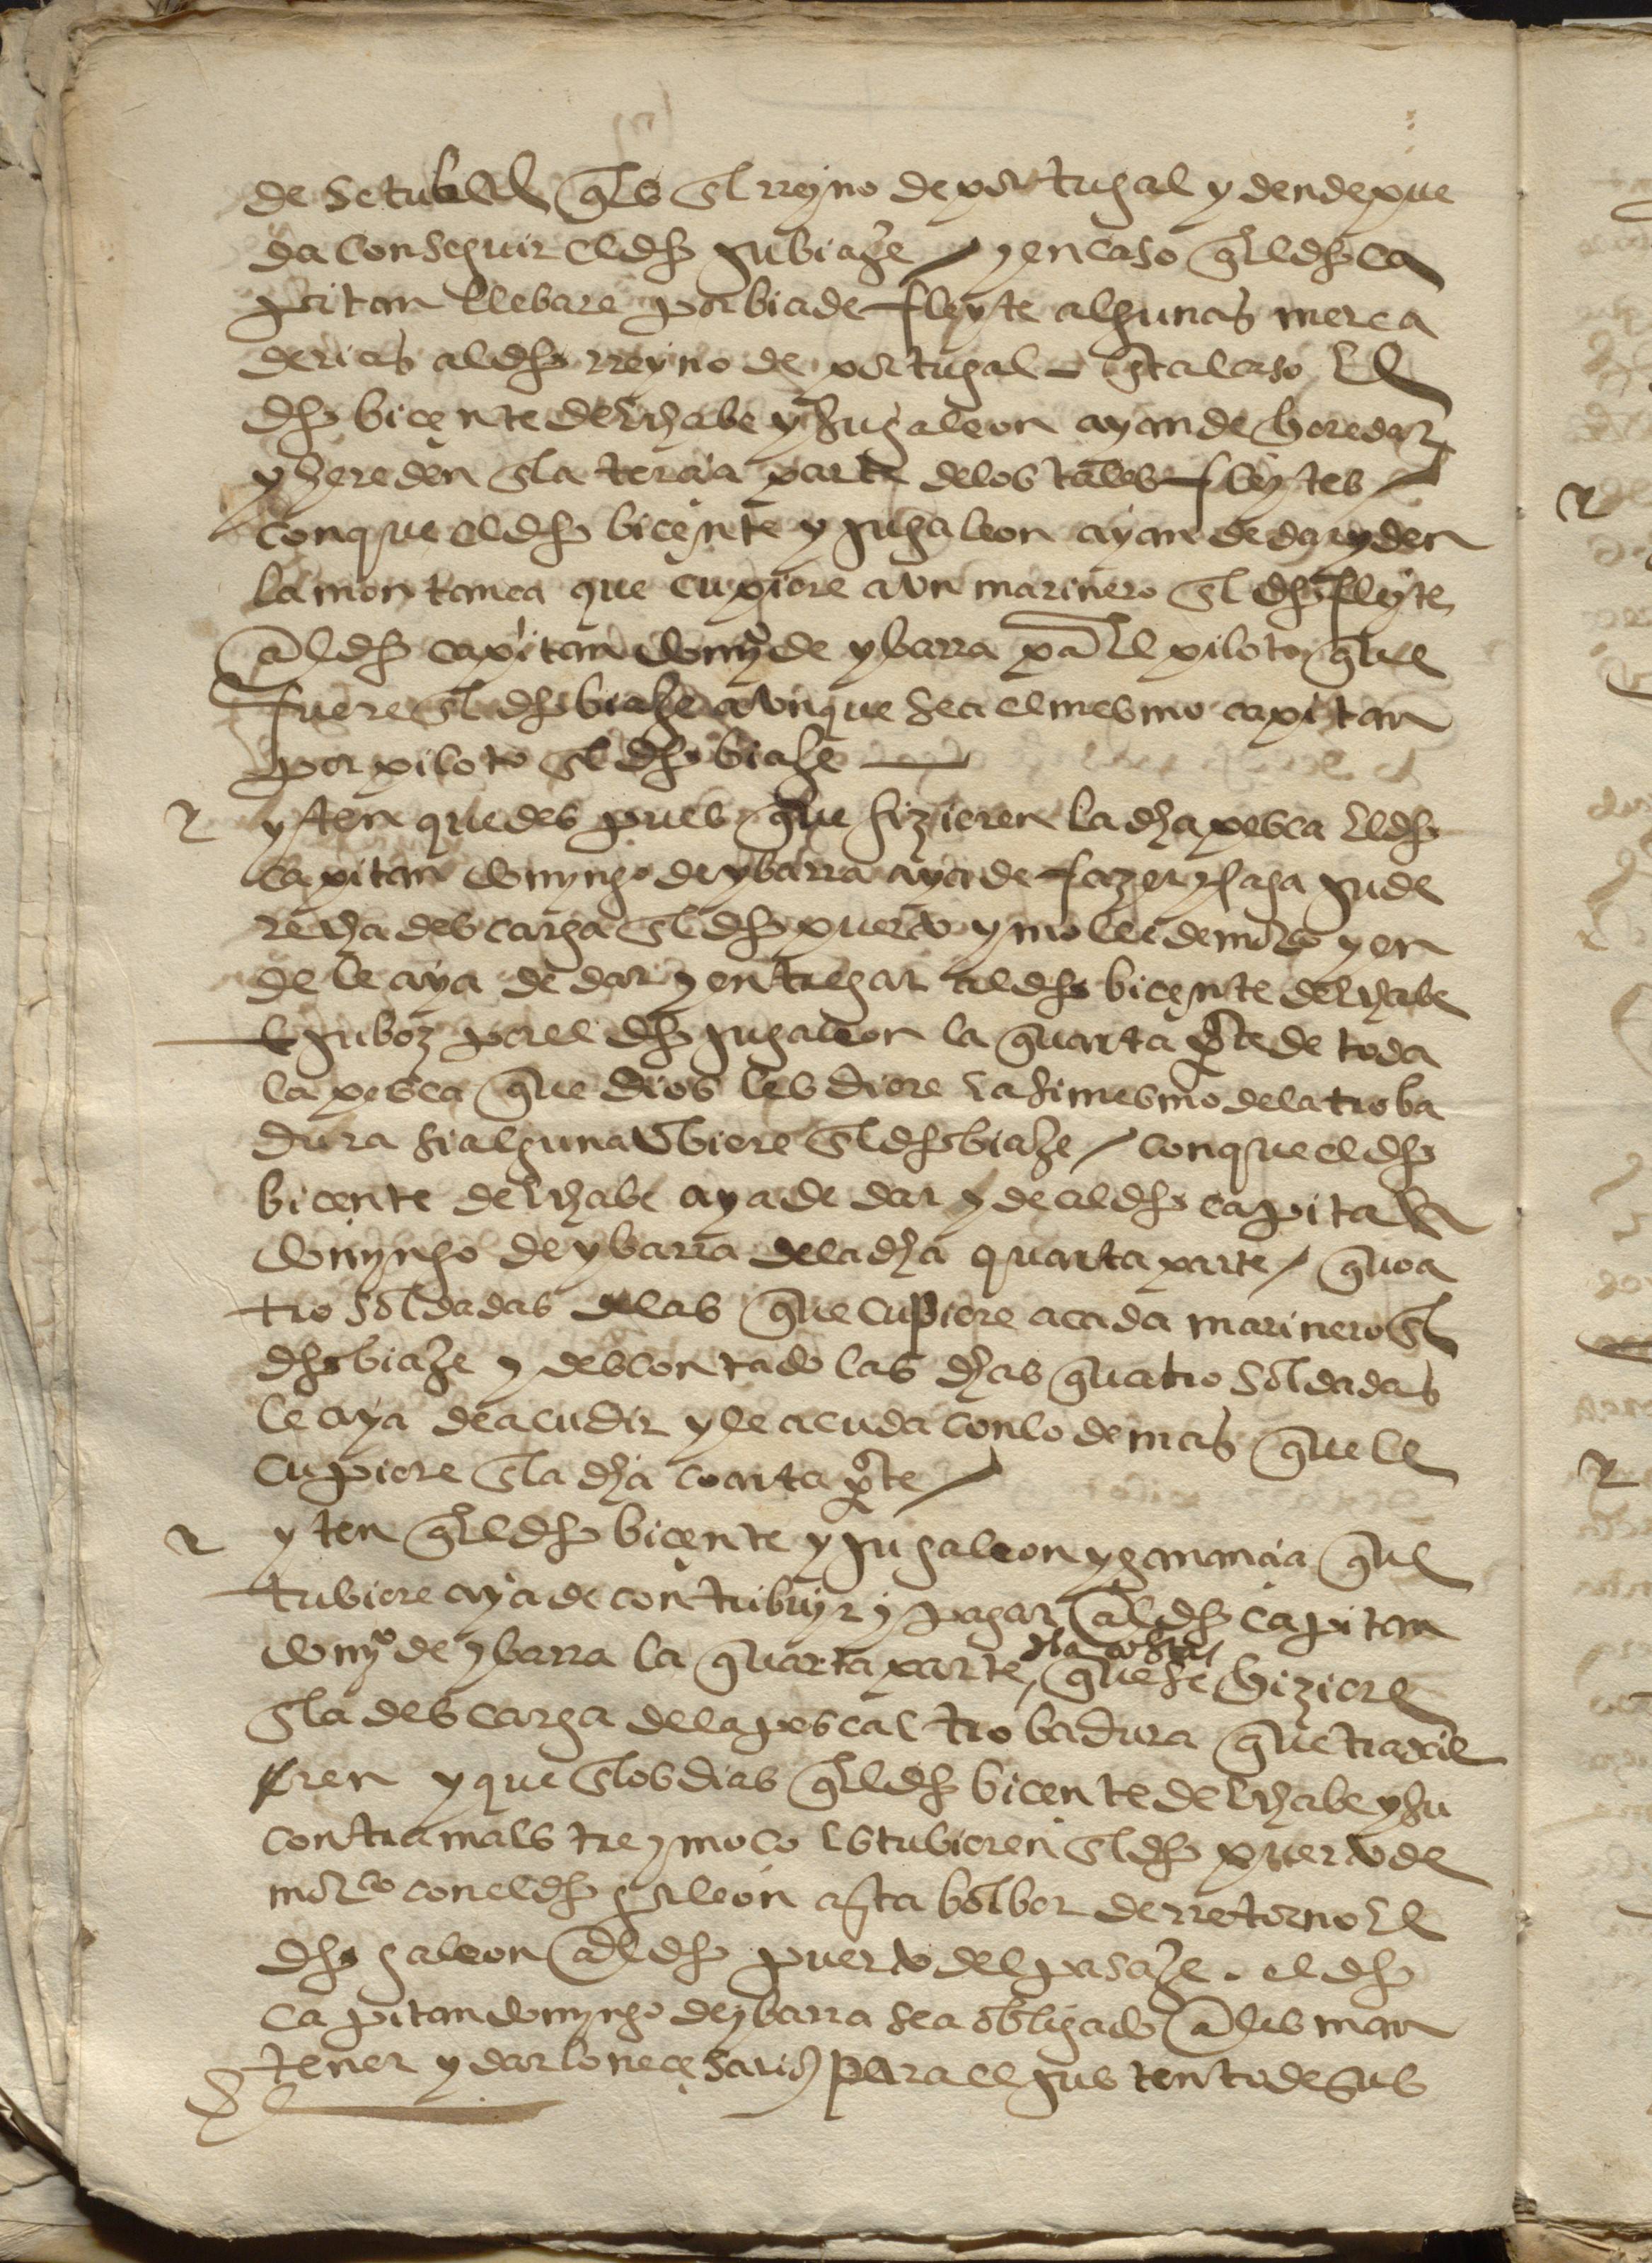 de setubal qs el rreyno de portugal y dende pue
da conseguir el dho su biaje / y en caso ql dho ca
pitan llebare por bia de fleyte algunas merca
derias al dho rreyno de portugal en tal caso el
dho bicente de echabe y su galeon ayan de heredar
y hereden en la tercia parte de los tales fleytes /
con que el dho bicente y su galeon ayan de dar y den
la montança que cupiere a vn marinero en el dho fleyte
al dho capitan domyº de ybarra pa el piloto que
fuere en el dho biaje avnque sea el mesmo capitan
por piloto en el dho biaje
yten que despues que fizieren la dha pesca el dho
capitan domyngo de ybarra aya de fazer y faga su de
recha descarga en el dho puerto y molle de motrico y en
de le aya de dar y entregar al dho bicente de echabe
o su boz por el dho su galeon la quarta pte de toda
la pesca que dios les diere e asi mesmo de la troba
dura si alguna obiere en el dho biaje / con que el dho
bicente de echabe aya de dar y de al dho capitan
domyngo de ybarra de la dha quarta parte / quoa
tro soldadas de las que cupiere a cada marinero en el
dho biaje y descontado las dhas quatro soldadas
le aya de acudir y le acuda con lo demas que le
cupiere en la dha coarta pte /
yten ql dho bicente y su galeon y ganancia que
tubiere aya de contribuyr y pagar al dho capitan
domyº de ybarra la quarta parte de la costa que se hiziere
en la descarga de la pesca e trobadura que traxie
ren y que en los dias ql dho bicente de echabe y su
contramaestre y moço estubieren en el dho puerto de
motrico con el dho galeon asta bolber de rretorno el
dho galeon al dho puerto del pasaje. el dho
capitan domyngo de ybarra sea obligado a les man
tener y dar lo neçesario para el sustento de sus